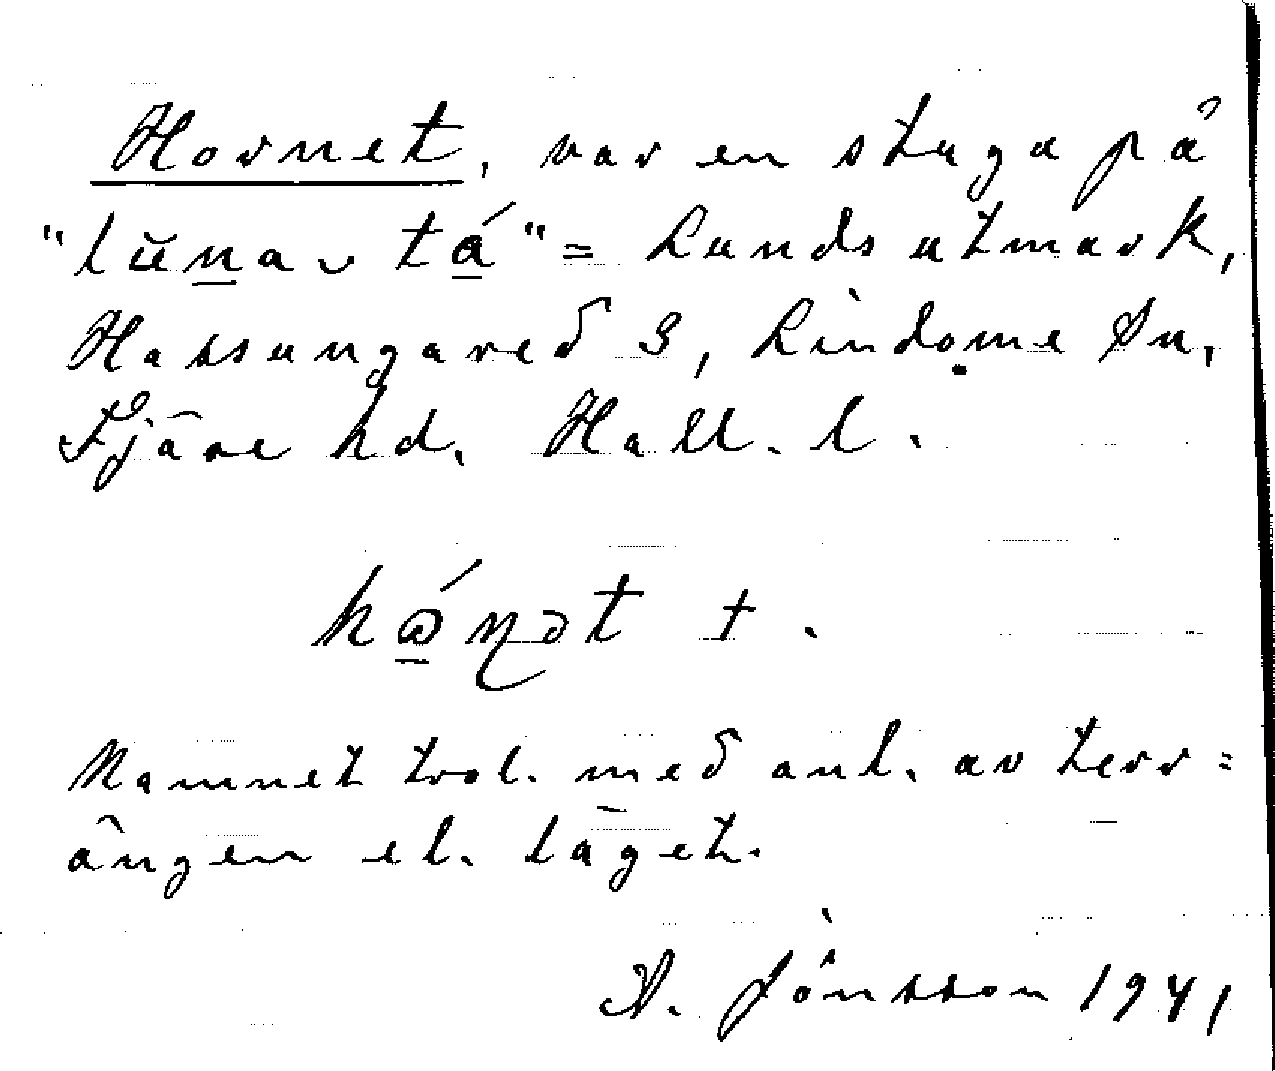 Hornet, var en stuga på
"lŭnar tá" = Lunds utmark,
Hassungared 3, Lindome sn,
Fjäre hd. Hall. l.
hǿɳət †.
Namnet trol. med anl. av terr=
ängen el. läget.
A. Jönsson 1941